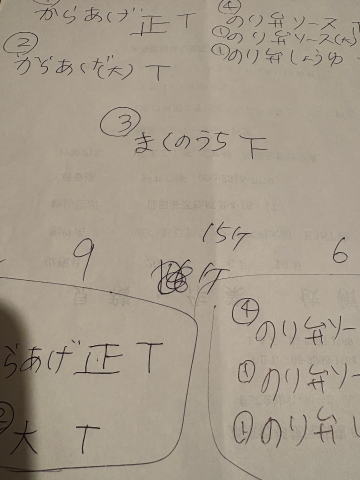 からあげ 正 T
②
からあげ(大) T
④
のり弁ソース
①のり弁ソース(大)
①のり弁しょうゆ
③
まくのうち 下
15ケ
9
ケ
6
らあげ 正 T
大 T
④
のり弁ソー
①のり弁ソ
①のり弁し